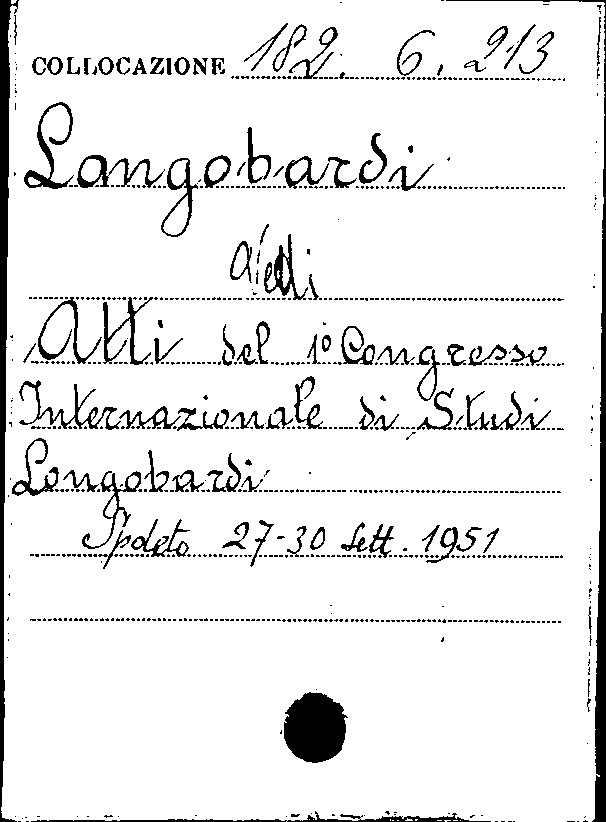 COLLOCAZIONE 182. 6. 213
Longobardi
Vedi
Atti del 1º Congresso
Internazionale di Studi
Longobardi
Spoleto 27-30 Sett. 1951